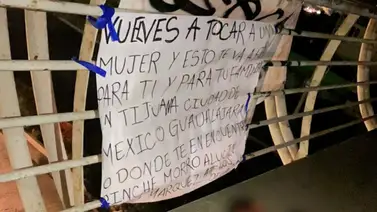 VUELVES A TOCAR A UNA
MUJER Y ESTO TE VA A
PARA TI Y PARA TU FAMILIA
N TIJUANA CIUDAD DE
MEXICO GUADALAJARA
O DONDE TE ENCUENTRE
PINCHE MORRO
MARQUEZ